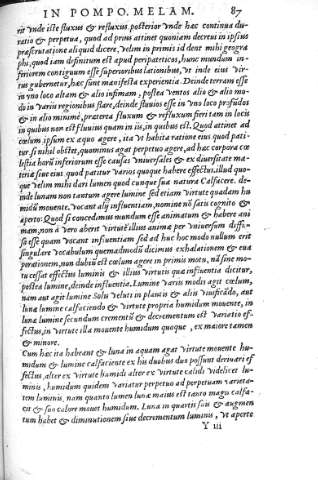 IN POMPO. MELAM. 87
rit vnde iste fluxus & refluxus posterior vnde hac continua du-
ratio & perpetua, quod ad prius attinet quoniam decreui in ipsius
præfatione aliquid dicere, velim in primis id dent mihi geogra
phi, quod iam definitum est apud peripateticos, hunc mundum in-
feriorem contiguum esse superioribus lationibus, vt inde eius vir-
tus gubernetur, hæc sunt manifesta experientia. Deinde terram esse
in vno loco altam & alio infimam, postea ventos alio & alio mo-
do in varijs regionibus flare, deinde fluuios esse in vno loco profundos
& in alio minime, præterea fluxum & refluxum fieri tam in locis
in quibus non est fluuius quam in iis, in quibus est. Quod attinet ad
cœlum ipsum ex æquo agere, ita vt habita ratione eius quod pati-
tur, si nihil obstet, quominus agat perpetuo agere, ad hæc corpora cœ
lestia harum inferiorum esse causas vniuersales & ex diuersitate ma-
teriæ siue eius quod patitur varios quoque habere effectus, illud quo-
que velim mihi dari lumen quod cunque sua natura Calfacere. de-
inde lunam non tantum agere lumine sed etiam virtute quadam hu
midum mouente, vocant alij influentiam, nomine non satis cognito &
aperto: Quod si concedimus mundum esse animatum & habere ani
mam, non à vero aberit virtutem illius animæ per vniuersum diffu-
sa esse quam vocant influentiam sed ad huc hoc modo nullum erit
singulare vocabulum quemadmodum dicimus exhalationem & eua
porationem, non dubium est cœlum agere in primis motu, nam sine mo-
tu cessat effectus luminis & illius virtutis qua influentia dicitur,
postea lumine, deinde influentia. Lumine varijs modis agit cœlum,
nam aut agit lumine Solis veluti in plantis & alijs viuificandis, aut
lunæ lumine calfaciendo & virtute propria humidum mouente, in
luna lumine secundum crementum & decrementum est variatio ef-
fectus, in virtute illa mouente humidum quoque, ex maiore tamen
& minore.
Cum hæc ita habeant & luna in aquam agat virtute mouente hu-
midum & lumine calfaciente ex his duobus duo possunt deriuari ef
fectus, alter ex virtute humidi alter ex virtute calidi videlicet lu-
minis, humidum quidem variatur perpetuo ad perpetuam varieta-
tem luminis, nam quanto lumen lunæ maius est tanto magis calfa-
cit & suo calore mouet humidum. Luna in quartis suis & augmen
tum habet & diminutionem siue decrementum luminis, vt aperte
Y iii